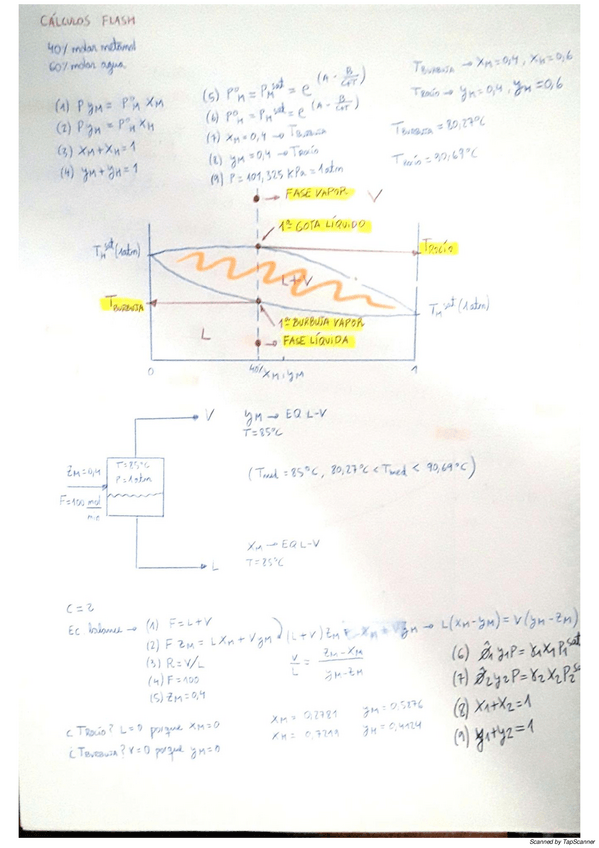 CÁLCULOS FLASH
40% molar metanol
60% molar agua
(1) P yM = P°M XM
(2) P yH = P°H XH
(3) XM + XH = 1
(4) yM + yH = 1
(5) P°M = PMsat = e^(A - B/(C+T))
(6) P°H = PHsat = e^(A - B/(C+T))
(7) XM = 0,4 → TBURBUJA
(8) yM = 0,4 → TROCÍO
(9) P = 101,325 KPa = 1atm
TBURBUJA → XM = 0,4, XH = 0,6
TROCÍO → yM = 0,4, yH = 0,6
TBURBUJA = 80,27°C
TROCÍO = 90,69°C
FASE VAPOR V
1ª GOTA LÍQUIDO
THsat (1atm)
TROCÍO
L+V
TBURBUJA
TMsat (1atm)
1ª BURBUJA VAPOR
L
FASE LÍQUIDA
0
40%
XM, yM
1
V
yM → EQ L-V
T = 85°C
ZM = 0,4
T = 85°C
P = 1atm
F = 100 mol/
(Tmed = 85°C, 80,27°C < Tmed < 90,69°C)
XM → EQ L-V
T = 85°C
L
C = 2
Ec balance → (1) F = L+V
(2) F ZM = L XM + V yM
(L+V) ZM
→ L(XM-yM) = V(yM-ZM)
(3) R = V/L
V/L = (ZM - XM)/(yM - ZM)
(4) F = 100
(5) ZM = 0,4
(6) ϕ̂1 y1 P = γ1 X1 P1sat
(7) ϕ̂2 y2 P = γ2 X2 P2
(8) X1 + X2 = 1
(9) y1 + y2 = 1
¿TROCÍO? L = 0 porque XM = 0
¿TBURBUJA? V = 0 porque yM = 0
XM = 0,2781 yM = 0,5876
XH = 0,7219 yH = 0,4124
Scanned by TapScanner